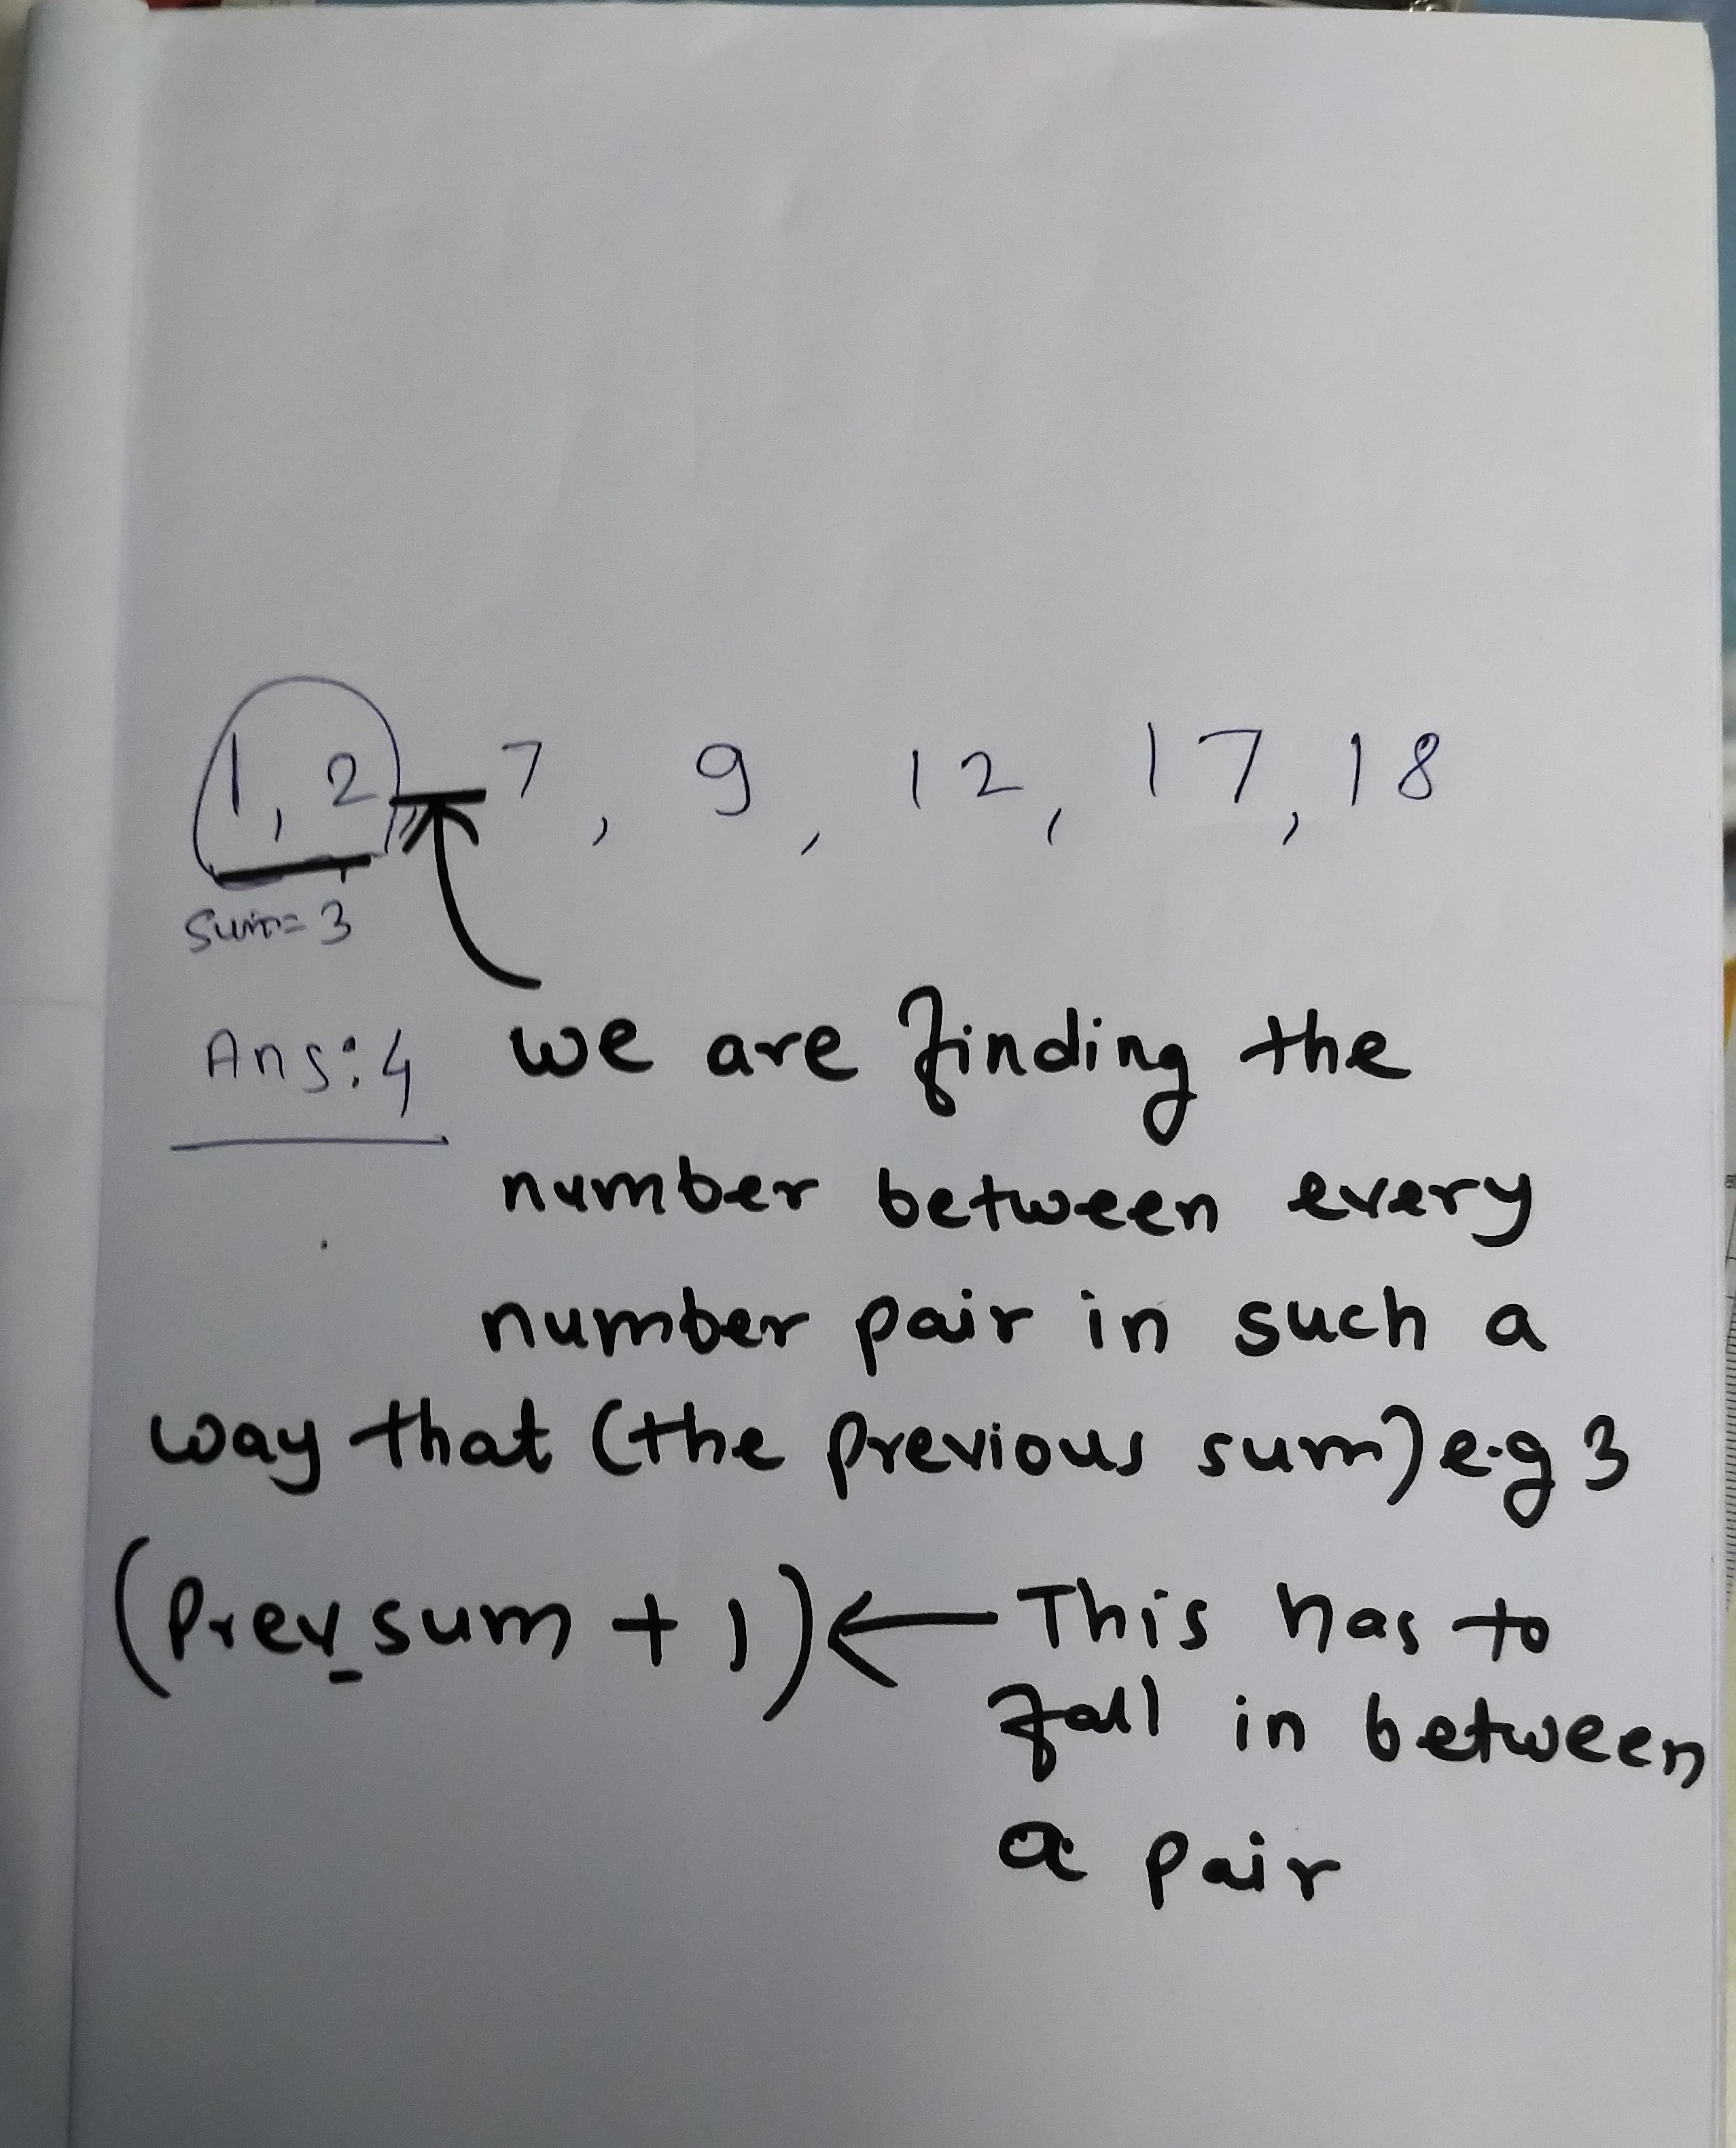 1, 2 7, 9, 12, 17, 18
Sum= 3
Ans: 4 we are finding the
number between every
number pair in such a
way that (the previous sum) e.g 3
(Prev_sum + 1) ← This has to
fall in between
a pair